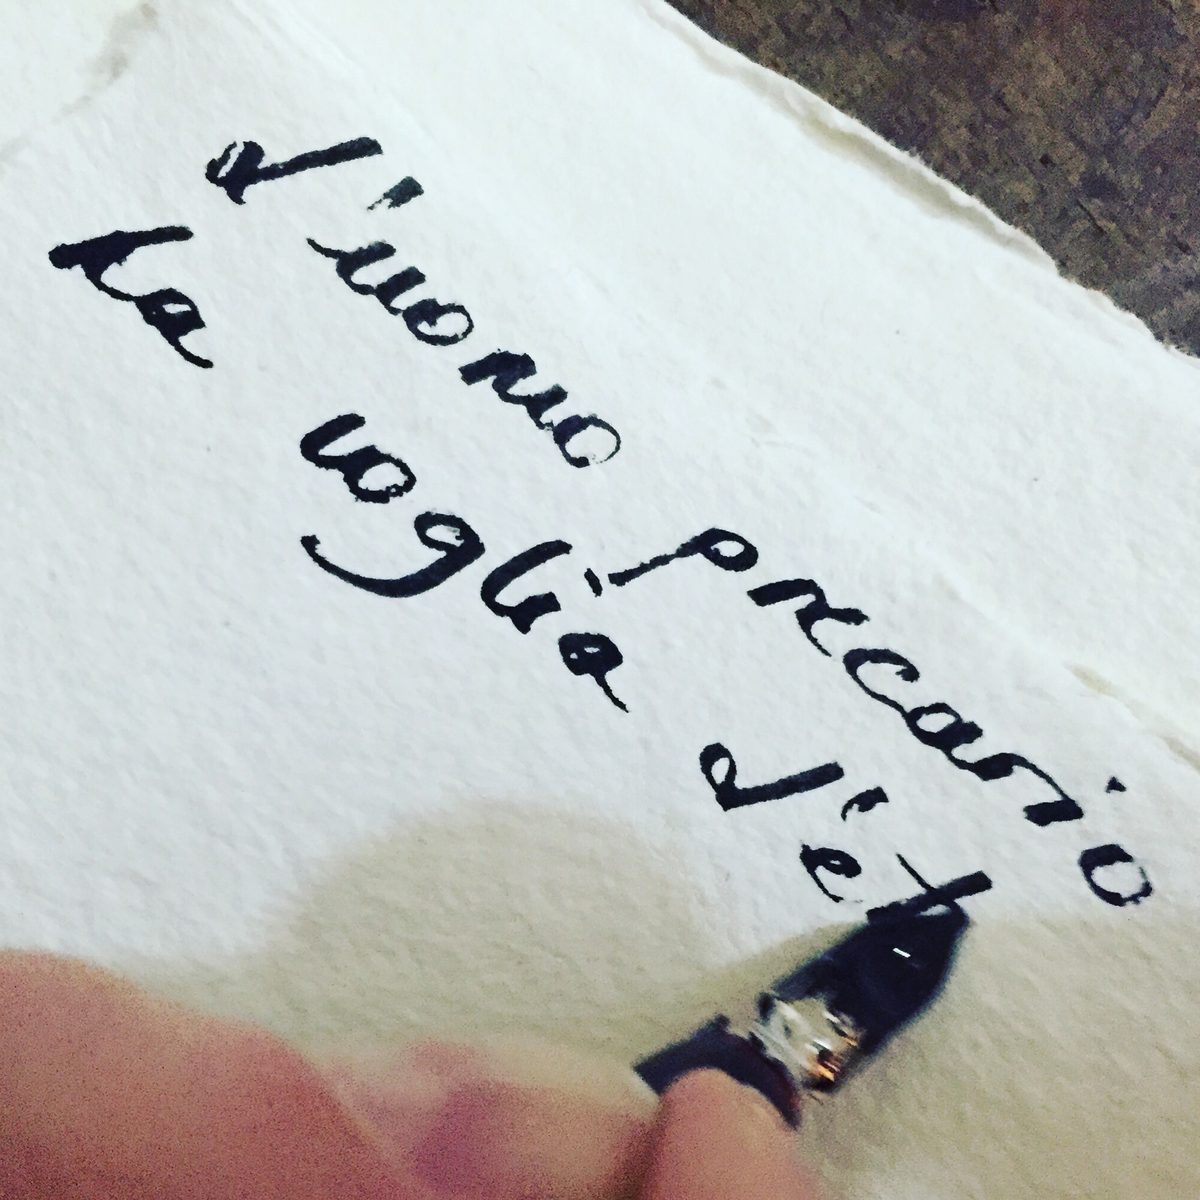 L'uomo precario
ha voglia d'et